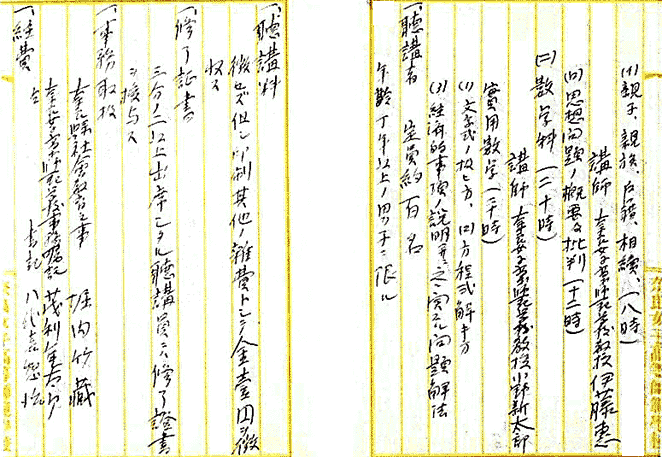 (イ)親子、親族、戸籍、相続、(八時)
講師 奈良女子高等師範学校教授 伊藤惠
(ロ)思想問題ノ概要及批判(十二時)
(二)数学科(二十時)
講師 奈良女子高等師範学校教授 小野新太郎
實用数学(二十時)
(1)文字式ノ扱ヒ方、(2)方程式解キ方
(3)経済的事項ノ説明並之ニ関スル問題解法
一、聴講者 定員約百名
年齢丁年以上ノ男子ニ限ル
一、聴講料
徴セズ但シ印刷其他ノ雑費トシテ金壹円ヲ徴
収ス
一、修了証書
三分ノ二以上出席シタル聴講員ニハ修了證書
ヲ授与ス
一、事務取扱
奈良縣社会教育主事 堀内竹蔵
奈良女子高等師範学校事務嘱託
書記
一、経費